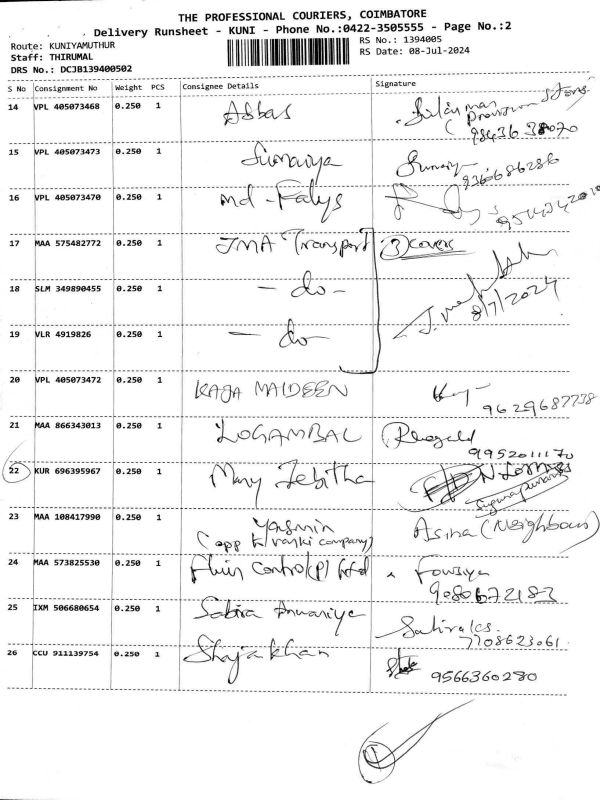 THE PROFESSIONAL COURIERS, COIMBATORE
Delivery Runsheet - KUNI - Phone No.:0422-3505555 - Page No.:2
Route: KUNIYAMUTHUR
RS No.: 1394005
Staff: THIRUMAL
RS Date: 08-Jul-2024
DRS No.: DCJB139400502
S No Consignment No Weight PCS Consignee Details Signature
14 VPL 405073468 0.250 1 Abbas
15 VPL 405073473 0.250 1 Sumaiya
9366686286
16 VPL 405073470 0.250 1 md - Falys
17 MAA 575482772 0.250 1 JMA Transport 3 covers
18 SLM 349890455 0.250 1 - do -
8/7/2024
19 VLR 4919826 0.250 1 - do -
20 VPL 405073472 0.250 1 KAJA MAIDEEN
9629687738
21 MAA 866343013 0.250 1 LOGAMBAL
9952011170
22 KUR 696395967 0.250 1 Mary Jebitha
23 MAA 108417990 0.250 1 Yasmin Asina (Neighbour)
(opp company)
24 MAA 573825530 0.250 1 Control (P) Ltd Fowsiya
9080672183
25 IXM 506680654 0.250 1 Sabira Anwariya
7708623061
26 CCU 911139754 0.250 1 Shajakhan 9566360280